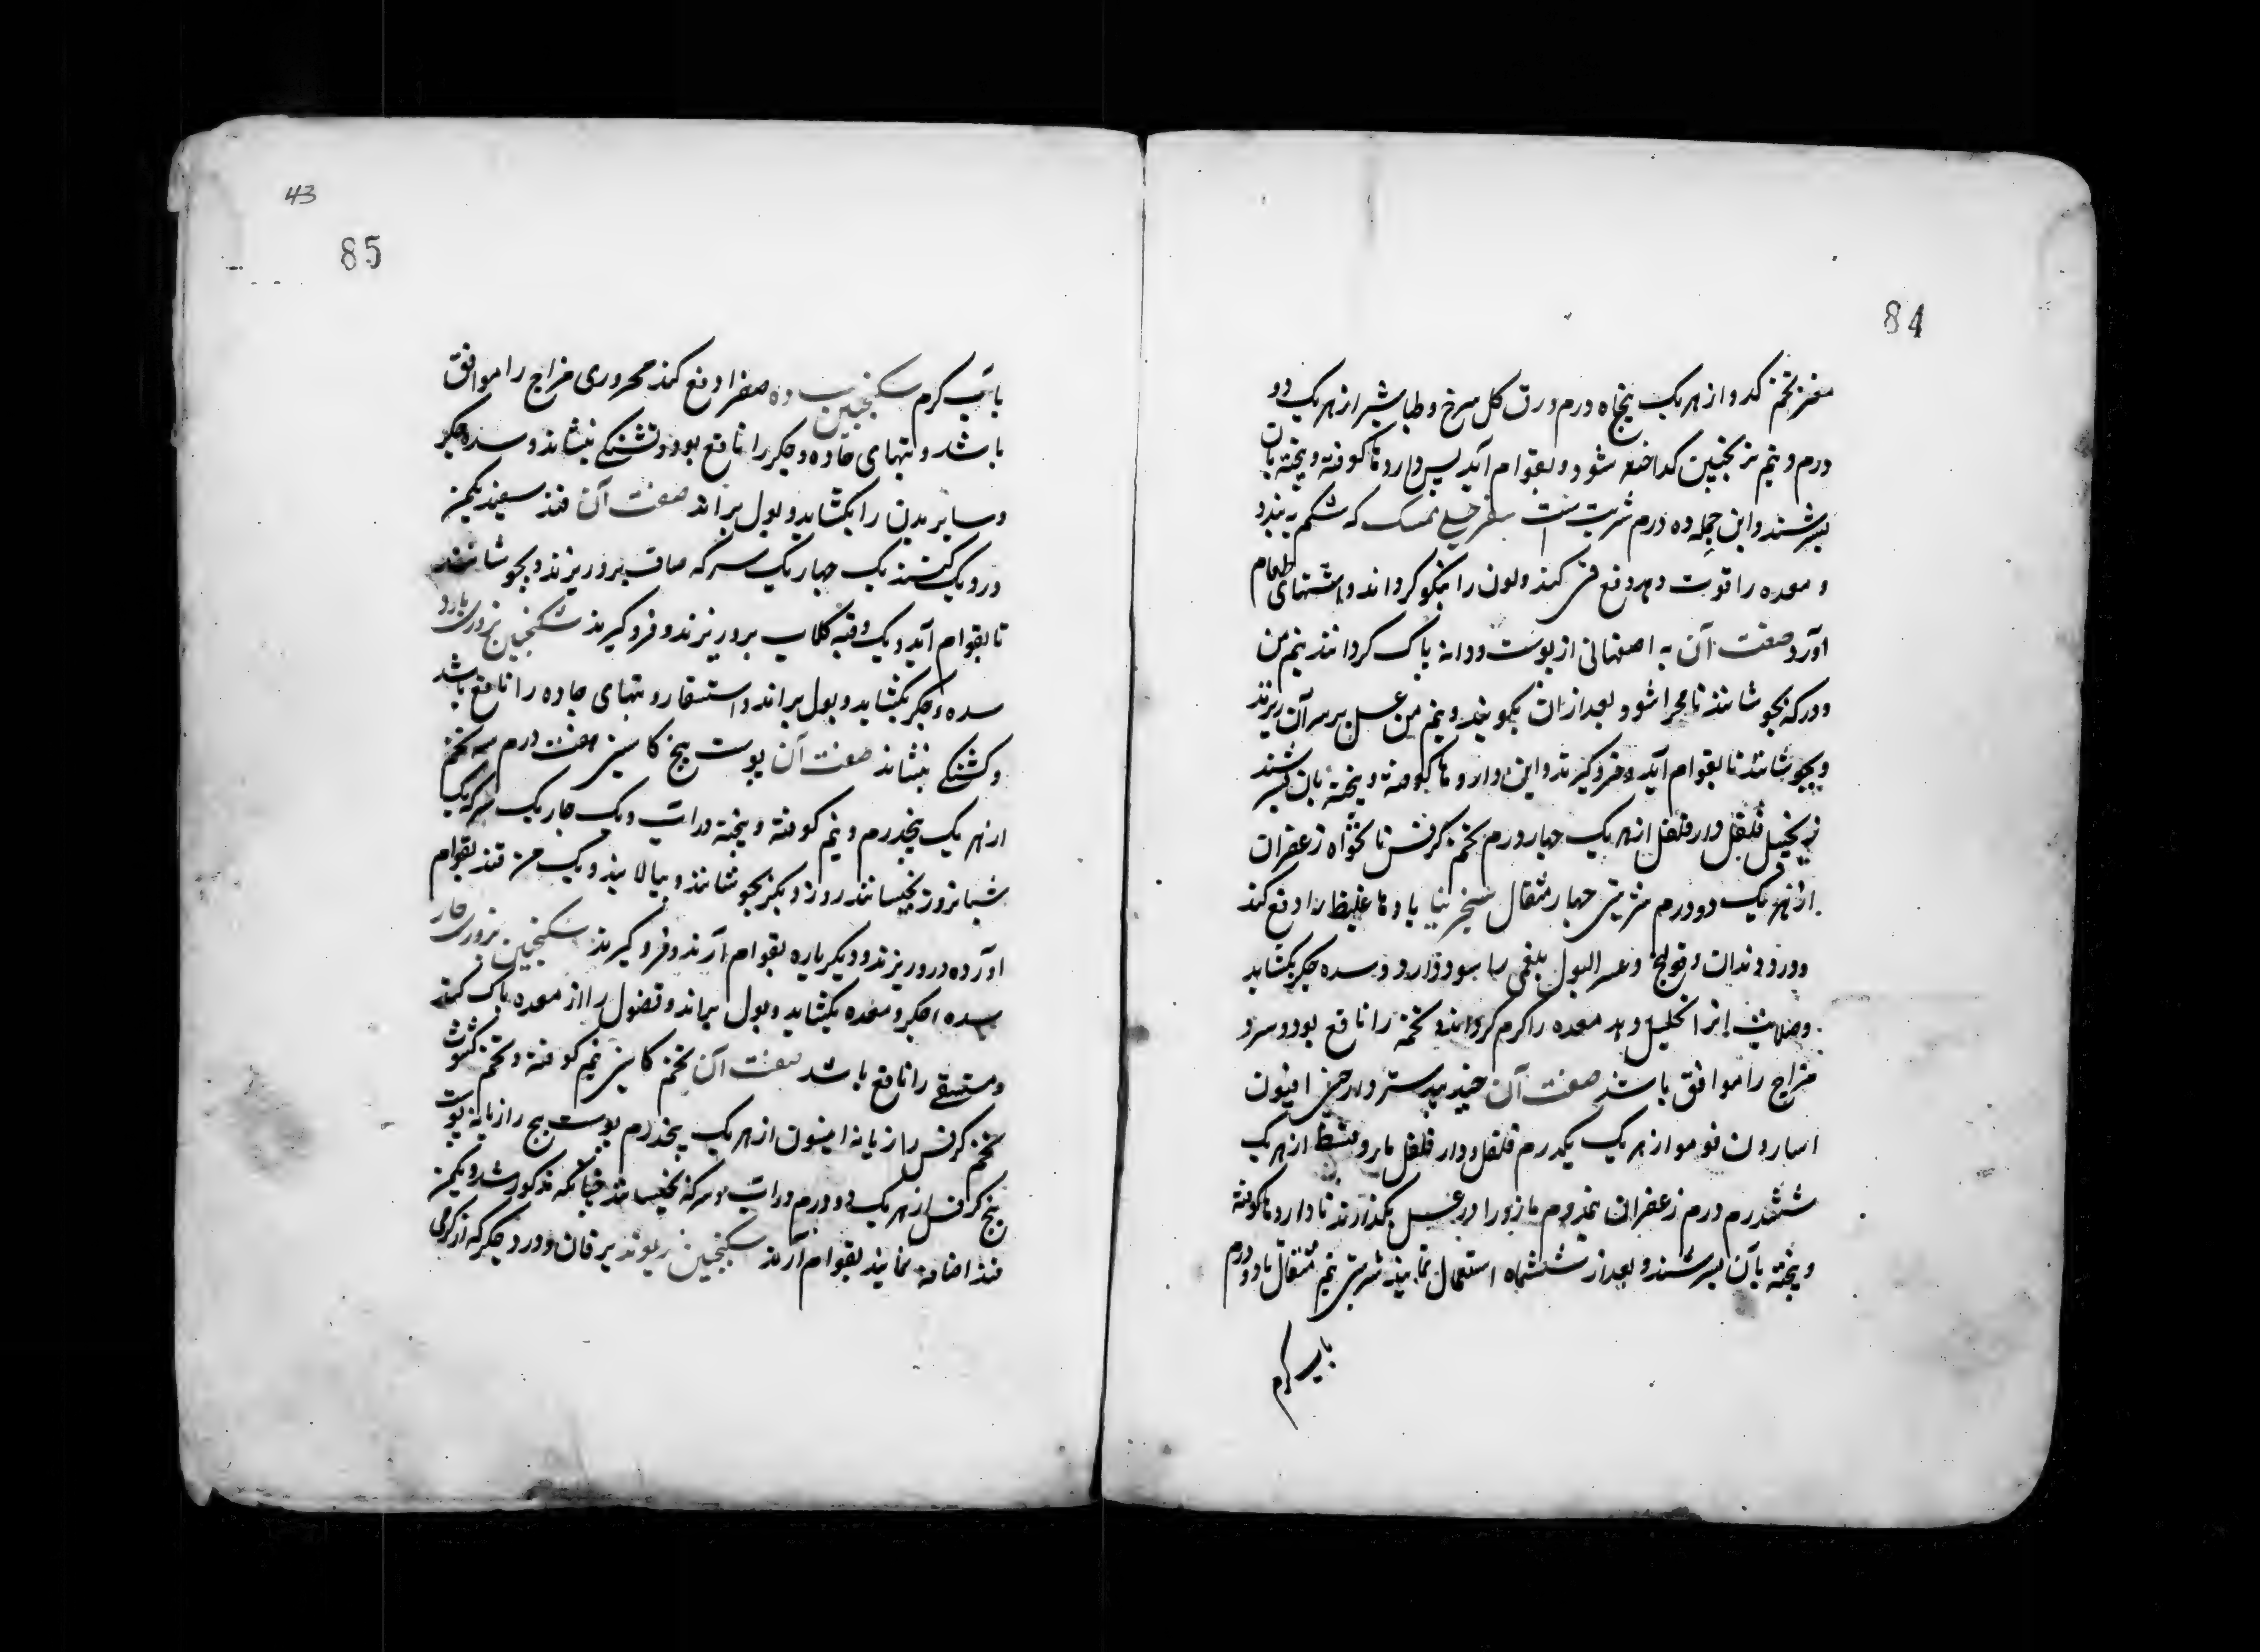 84
مغز تخم کدو از هر یک پنجاه درم ورق کل سرخ و طباشیر از هر یک دو
درم و نیم ترنجبین کداخته شود و بقوام آید پس داروها کوفته و پخته بآن
بسرشند و این جمله ده درم شربت است سفرجلی ممسک که شکم به بندد
و معده را قوت دهد و دفع قی کند و لون را نیکو کرداند و اشتهای طعام
آورد صفت آن به اصفهانی از پوست و دانه پاک کردانند نیم من
و در سرکه بجوشانند تا مهرا شود و بعد از ان بکوبند و نیم من عسل بر سر آن ریزند
و بجوشانند تا بقوام آید و فروکیرند و این داروها کوفته و پخته بآن بسرشند
زنجبیل فلفل دارفلفل از هر یک چهار درم تخم کرفس نانخواه زعفران
از هر یک دو درم شربتی چهار مثقال سنجرینیا بادها غلیظ را دفع کند
و درد دندان و قولنج و عسر البول بلغمی را سود دارد و سده جکر بکشاید
معده را کرم کرداند و تخمه را نافع بود و سرد
مزاج را موافق باشد صفت آن جندبیدستر دارچینی افیون
اسارون فو مو از هر یک یکدرم فلفل و دارفلفل بارزد و قسط از هر یک
ششدرم درم زعفران نیمدرم بارزد را در عسل بکدازند تا داروها کوفته
و پخته بآن بسرشند و بعد از ششماه استعمال نمایند شربتی نیم مثقال با دو درم
باب کرم
43
85
باب کرم سکنجبین ساده صفرا دفع کند محروری مزاج را موافق
باشد و تبهای حاده و جکر را نافع بود و تشنکی بنشاند و سده جکر
و سایر بدن را بکشاید و بول براند صفت آن قند سفید یکمن
در دیک کنند یک چهاریک سرکه صاف برو ریزند و بجوشانند
تا بقوام آید و یک وقیه کلاب برو ریزند و فروکیرند سکنجبین بزوری بارد
سده جکر بکشاید و بول براند و استسقا و تبهای حاده را نافع باشد
و تشنکی بنشاند صفت آن پوست بیخ کاسنی هفت درم سه تخم
از هر یک پنجدرم و نیم کوفته و پخته در آب و یک چاریک سرکه یک
شبانروز بخیسانند روز دیکر بجوشانند و بپالایند و یک من قند بقوام
آورده درو ریزند و دیکر باره بقوام آرند و فروکیرند سکنجبین بزوری حار
سده جکر و معده بکشاید و بول براند و فضول را از معده پاک کند
و مستسقی را نافع باشد صفت آن تخم کاسنی نیم کوفته و تخم کشوث
تخم کرفس رازیانه انیسون از هر یک پنجدرم پوست بیخ رازیانه پوست
بیخ کرفس از هر یک دو درم در آب و سرکه بخیسانند چنانکه مذکور شد و یکمن
قند اضافه نمایند بقوام آرند سکنجبین ریوند یرقان و درد جکر که از کرمی